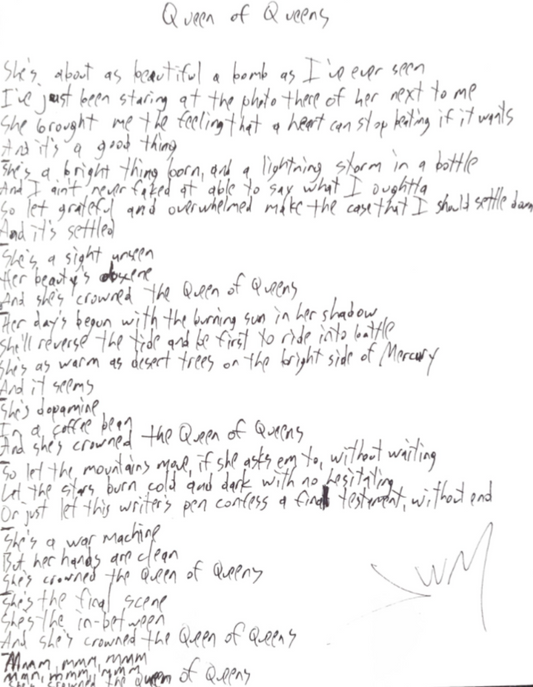 Queen of Queens
She's about as beautiful a bomb as I've ever seen
I've just been staring at the photo there of her next to me
She brought me the feeling that a heart can stop beating if it wants
And it's a good thing
She's a bright thing born, and a lightning storm in a bottle
And I ain't never faked at able to say what I oughtta
So let grateful and overwhelmed make the case that I should settle down
And it's settled
She's a sight unseen
Her beauty's obscene
And she's crowned the Queen of Queens
Her day's begun with the burning sun in her shadow
She'll reverse the tide and be first to ride into battle
She's as warm as desert trees on the bright side of Mercury
And it seems
She's dopamine
In a coffee bean
And she's crowned the Queen of Queens
So let the mountains move, if she asks em to, without waiting
Let the stars burn cold and dark with no hesitating
Or just let this writer's pen confess a final testament, without end
She's a war machine
But her hands are clean
She's crowned the Queen of Queens
She's the final scene
She's the in-between
And she's crowned the Queen of Queens
Mmmm, mmm, mmm
Mmm, mmmm, mmm
She's crowned the Queen of Queens
WM